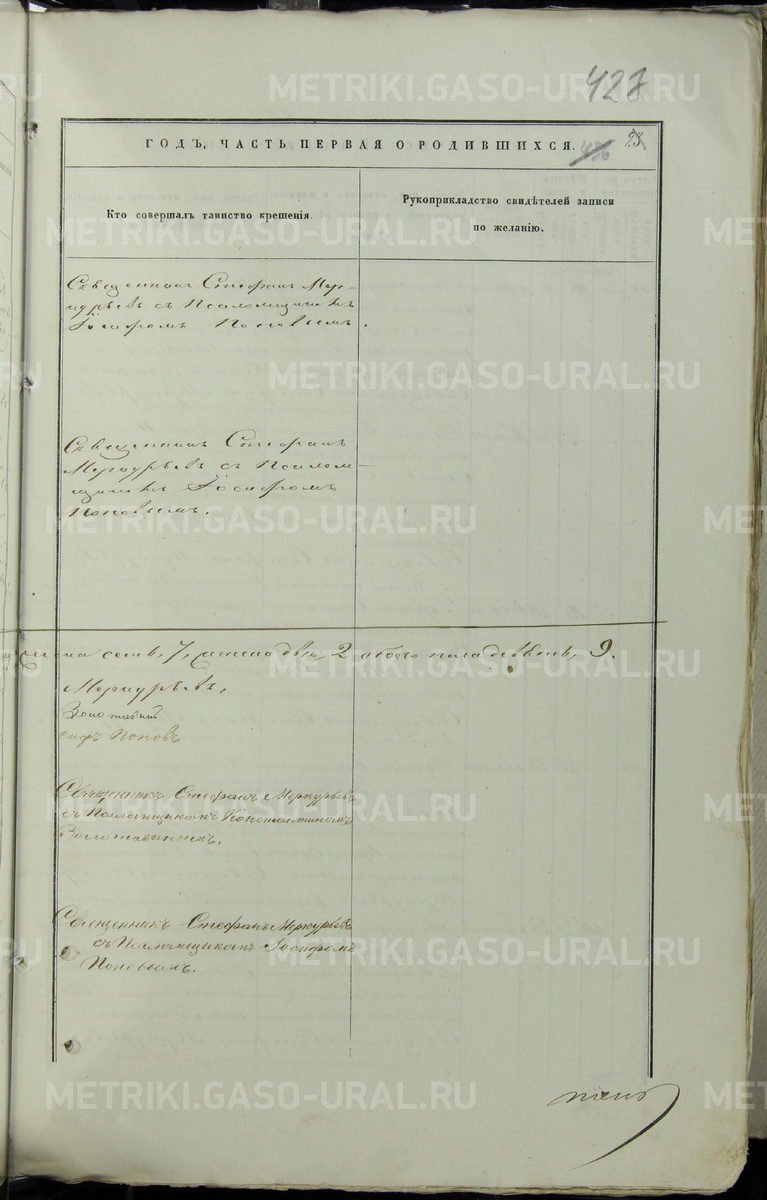 427
ГОДЪ, ЧАСТЬ ПЕРВАЯ О РОДИВШИХСЯ.
436
73
Кто совершалъ таинство крещенія.
Рукоприкладство свидѣтелей записи
по желанію.
Священникъ Стефанъ Мер-
курьевъ съ Псаломщикомъ
Іосифомъ Поповымъ.
Священникъ Стефанъ
Меркурьевъ съ Псалом-
щикомъ Іосифомъ
Поповымъ.
семь, 7, женска двѣ, 2 обоего пола девять, 9.
Меркурьевъ,
Золотавинъ
сифъ Поповъ
Священникъ Стефанъ Меркурьевъ
съ Псаломщикомъ Константиномъ
Золотавинымъ.
Священникъ Стефанъ Меркурьевъ
съ Псаломщикомъ Іосифомъ
Поповымъ.
METRIKI.GASO-URAL.RU